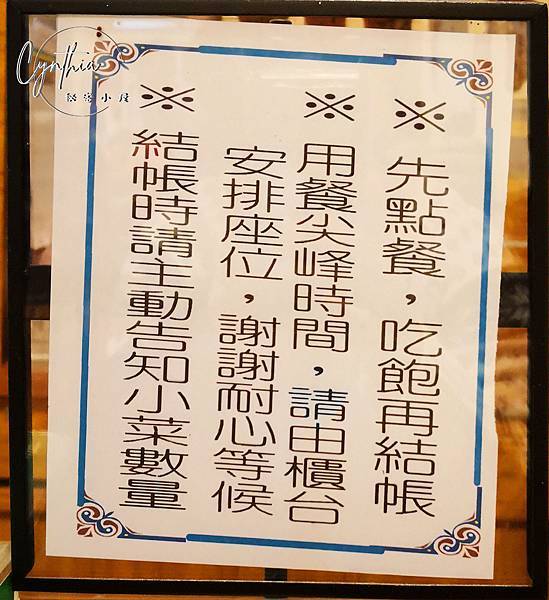 ※先點餐，吃飽再結帳
※用餐尖峰時間，請由櫃台
安排座位，謝謝耐心等候
※結帳時請主動告知小菜數量
Cynthia